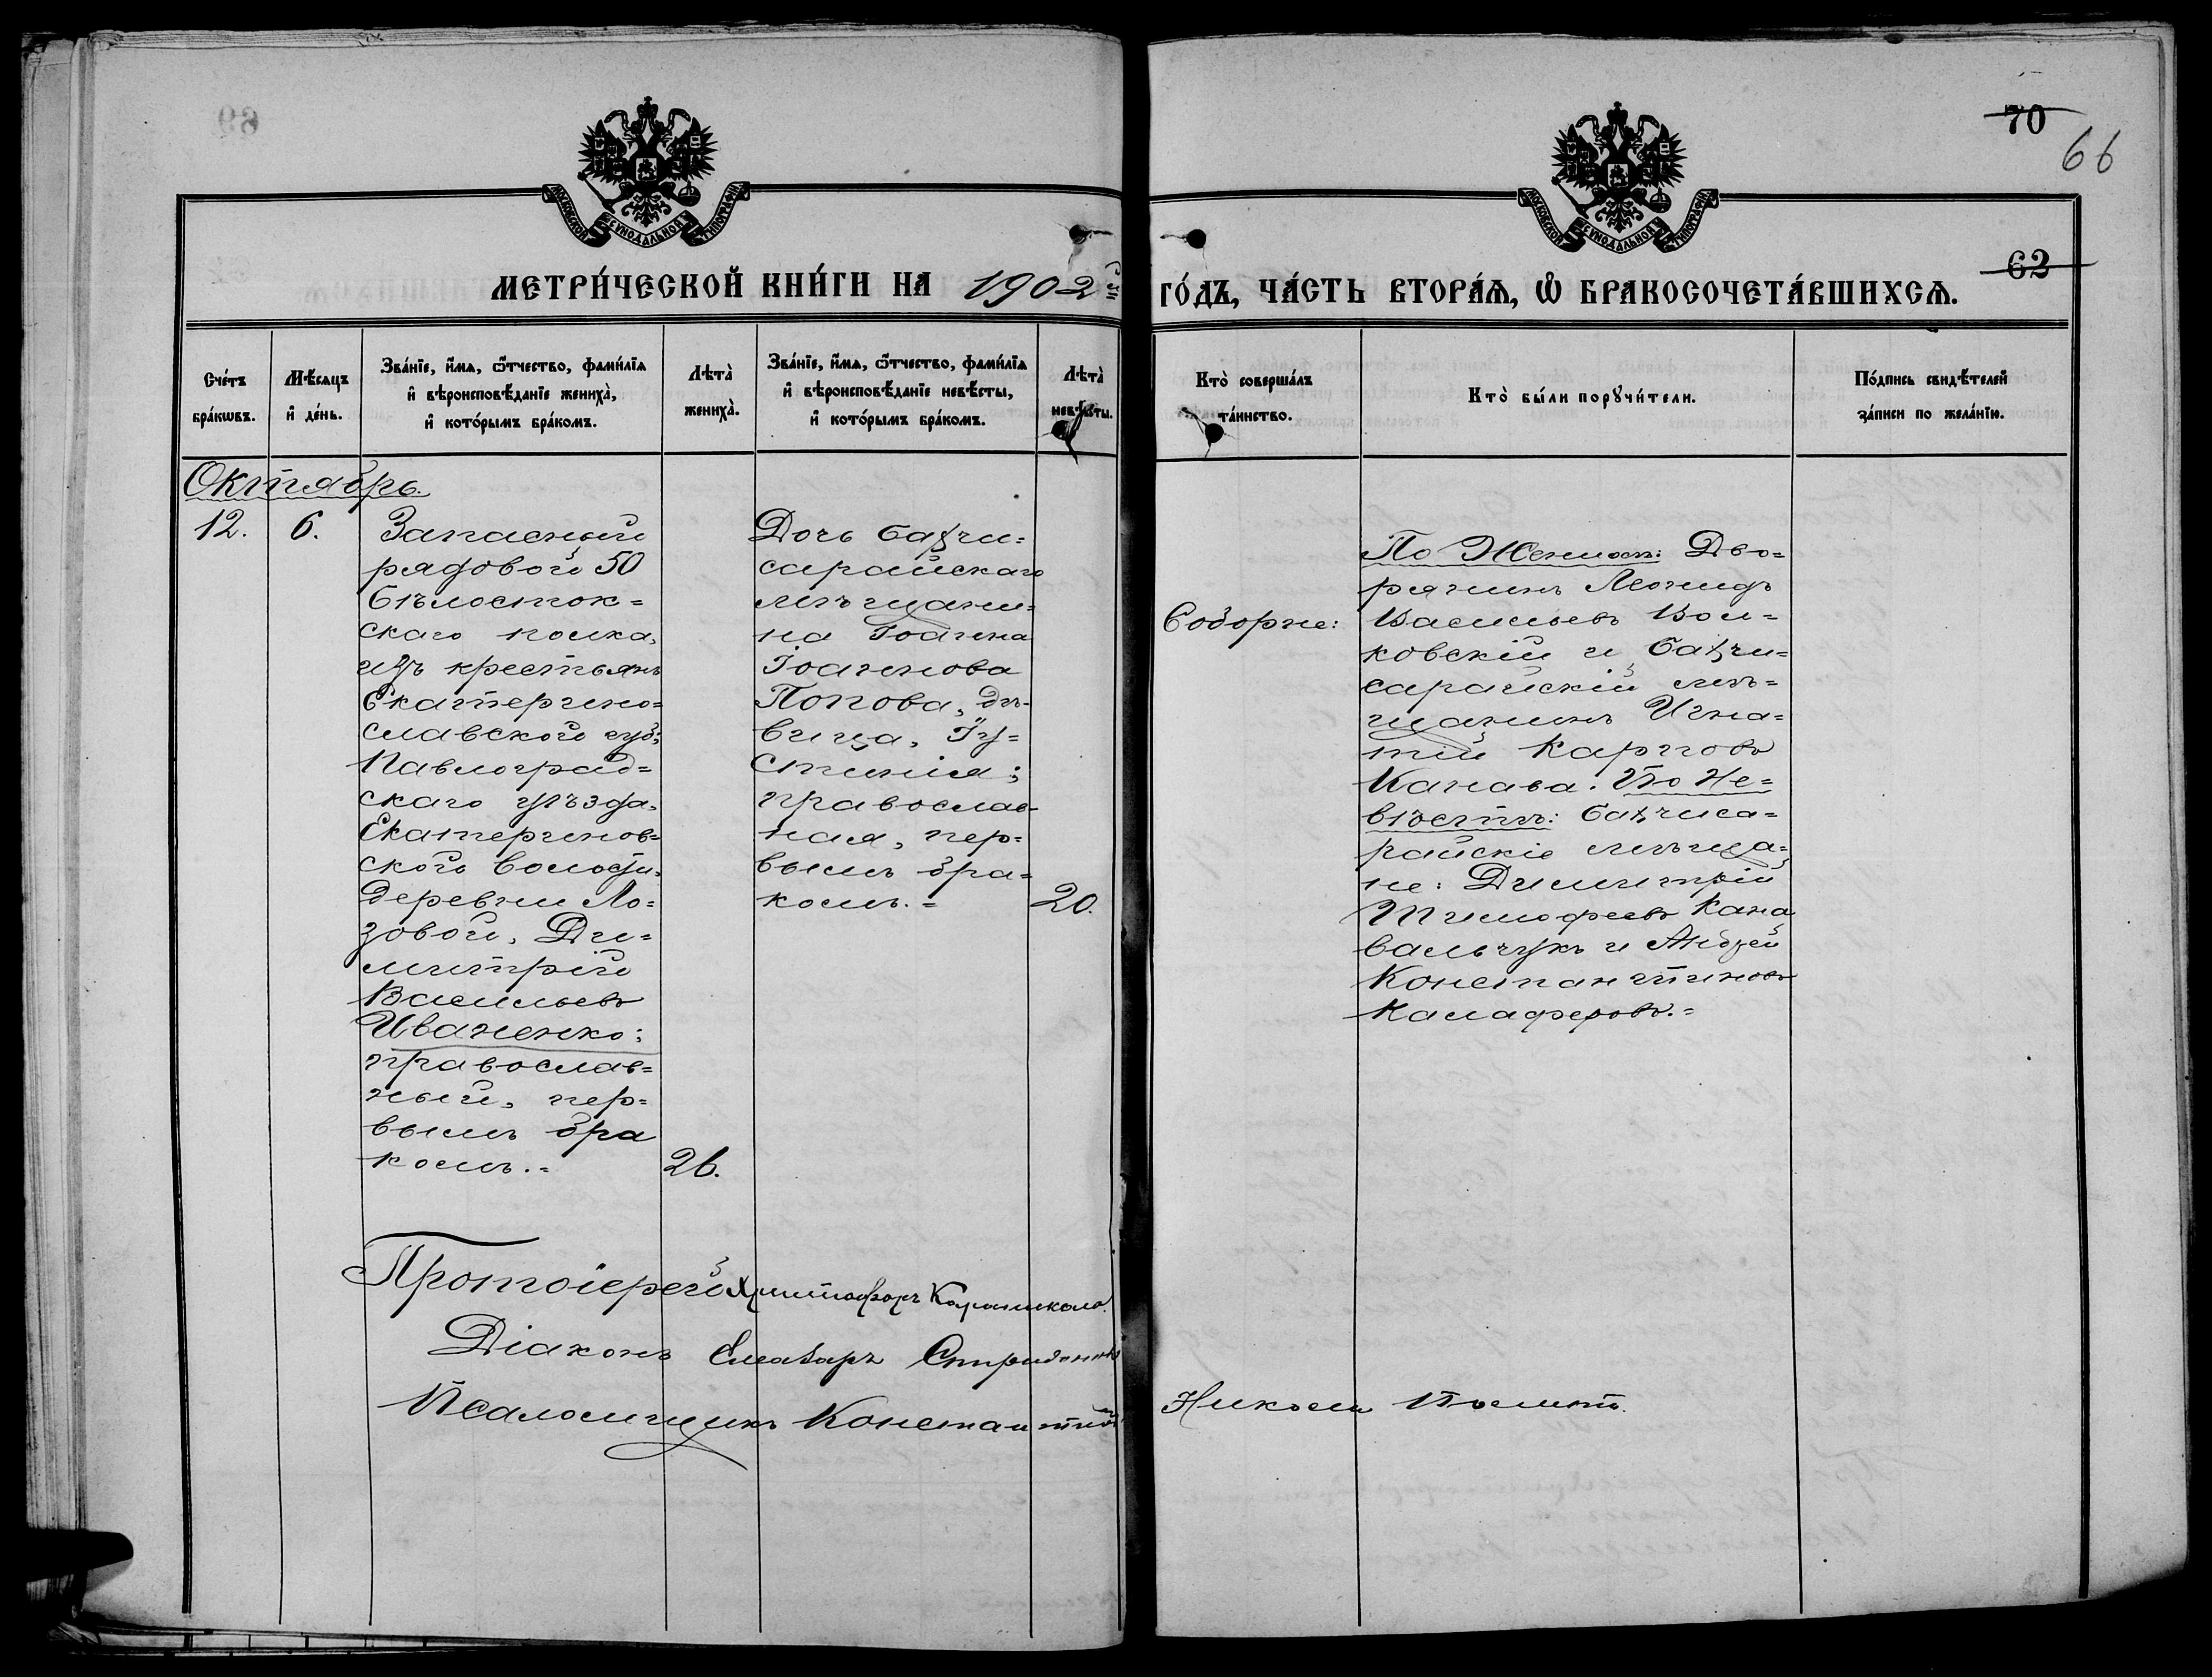 70
66
МОСКОВСКОЙ СѴНОДАЛЬНОЙ ТИПОГРАФІИ
МОСКОВСКОЙ СѴНОДАЛЬНОЙ ТИПОГРАФІИ
МЕТРИ́ЧЕСКОЙ КНИ́ГИ НА 1902й
ГО́ДЪ, ЧА́СТЬ ВТОРА́Ѧ, Ѽ БРАКОСОЧЕТА́ВШИХСѦ.
62
Сче́тъ бра́кѡвъ.
Мѣ́сѧцъ и҆ де́нь.
Зва́нїе, и҆́мѧ, ѻ҆́тчество, фами́лїѧ и҆ вѣроисповѣ́данїе жениха̀, и҆ кото́рымъ бра́комъ.
Лѣта̀ жениха̀.
Зва́нїе, и҆́мѧ, ѻ҆́тчество, фами́лїѧ и҆ вѣроисповѣ́данїе невѣ́сты, и҆ кото́рымъ бра́комъ.
Лѣта̀ невѣ́сты.
Кто̀ соверша́лъ та́инство.
Кто̀ бы́ли порꙋчи́тели.
По́дпись свидѣ́телей за́писи по жела́нїю.
Октябрь.
12.
6.
Запасный
рядовой 50
Бѣлосток=
скаго полка,
изъ крестьянъ
Екатерино=
славской губ:
Павлоград=
скаго уѣзда,
Екатеринов=
ской волости,
деревни Ло=
зовой, Ди=
митрій
Васильевъ
Иваненко;
православ=
ный, пер=
вымъ бра
комъ.=
26.
Дочь бахчи=
сарайскаго
мѣщани=
на Іоанна
Іоаннова
Попова, дѣ-
вица, Іу=
стинія;
православ-
ная, пер=
вымъ бра=
комъ.=
20.
Соборне:
По Женихѣ: Дво=
рянинъ Леонидъ
Васильевъ Вол=
ковскій и бахчи=
сарайскій мѣ=
щанинъ Игна=
тій Карповъ
Канава. По Не=
вѣстѣ: бахчиса=
райскіе мѣща=
не: Димитрій
Тимофеевъ Кана
вальчукъ и Андрей
Константиновъ
Калаферовъ.=
Протоіерей Христофоръ
Діаконъ Елеазаръ Спиридоновъ
Псаломщикъ Константинъ